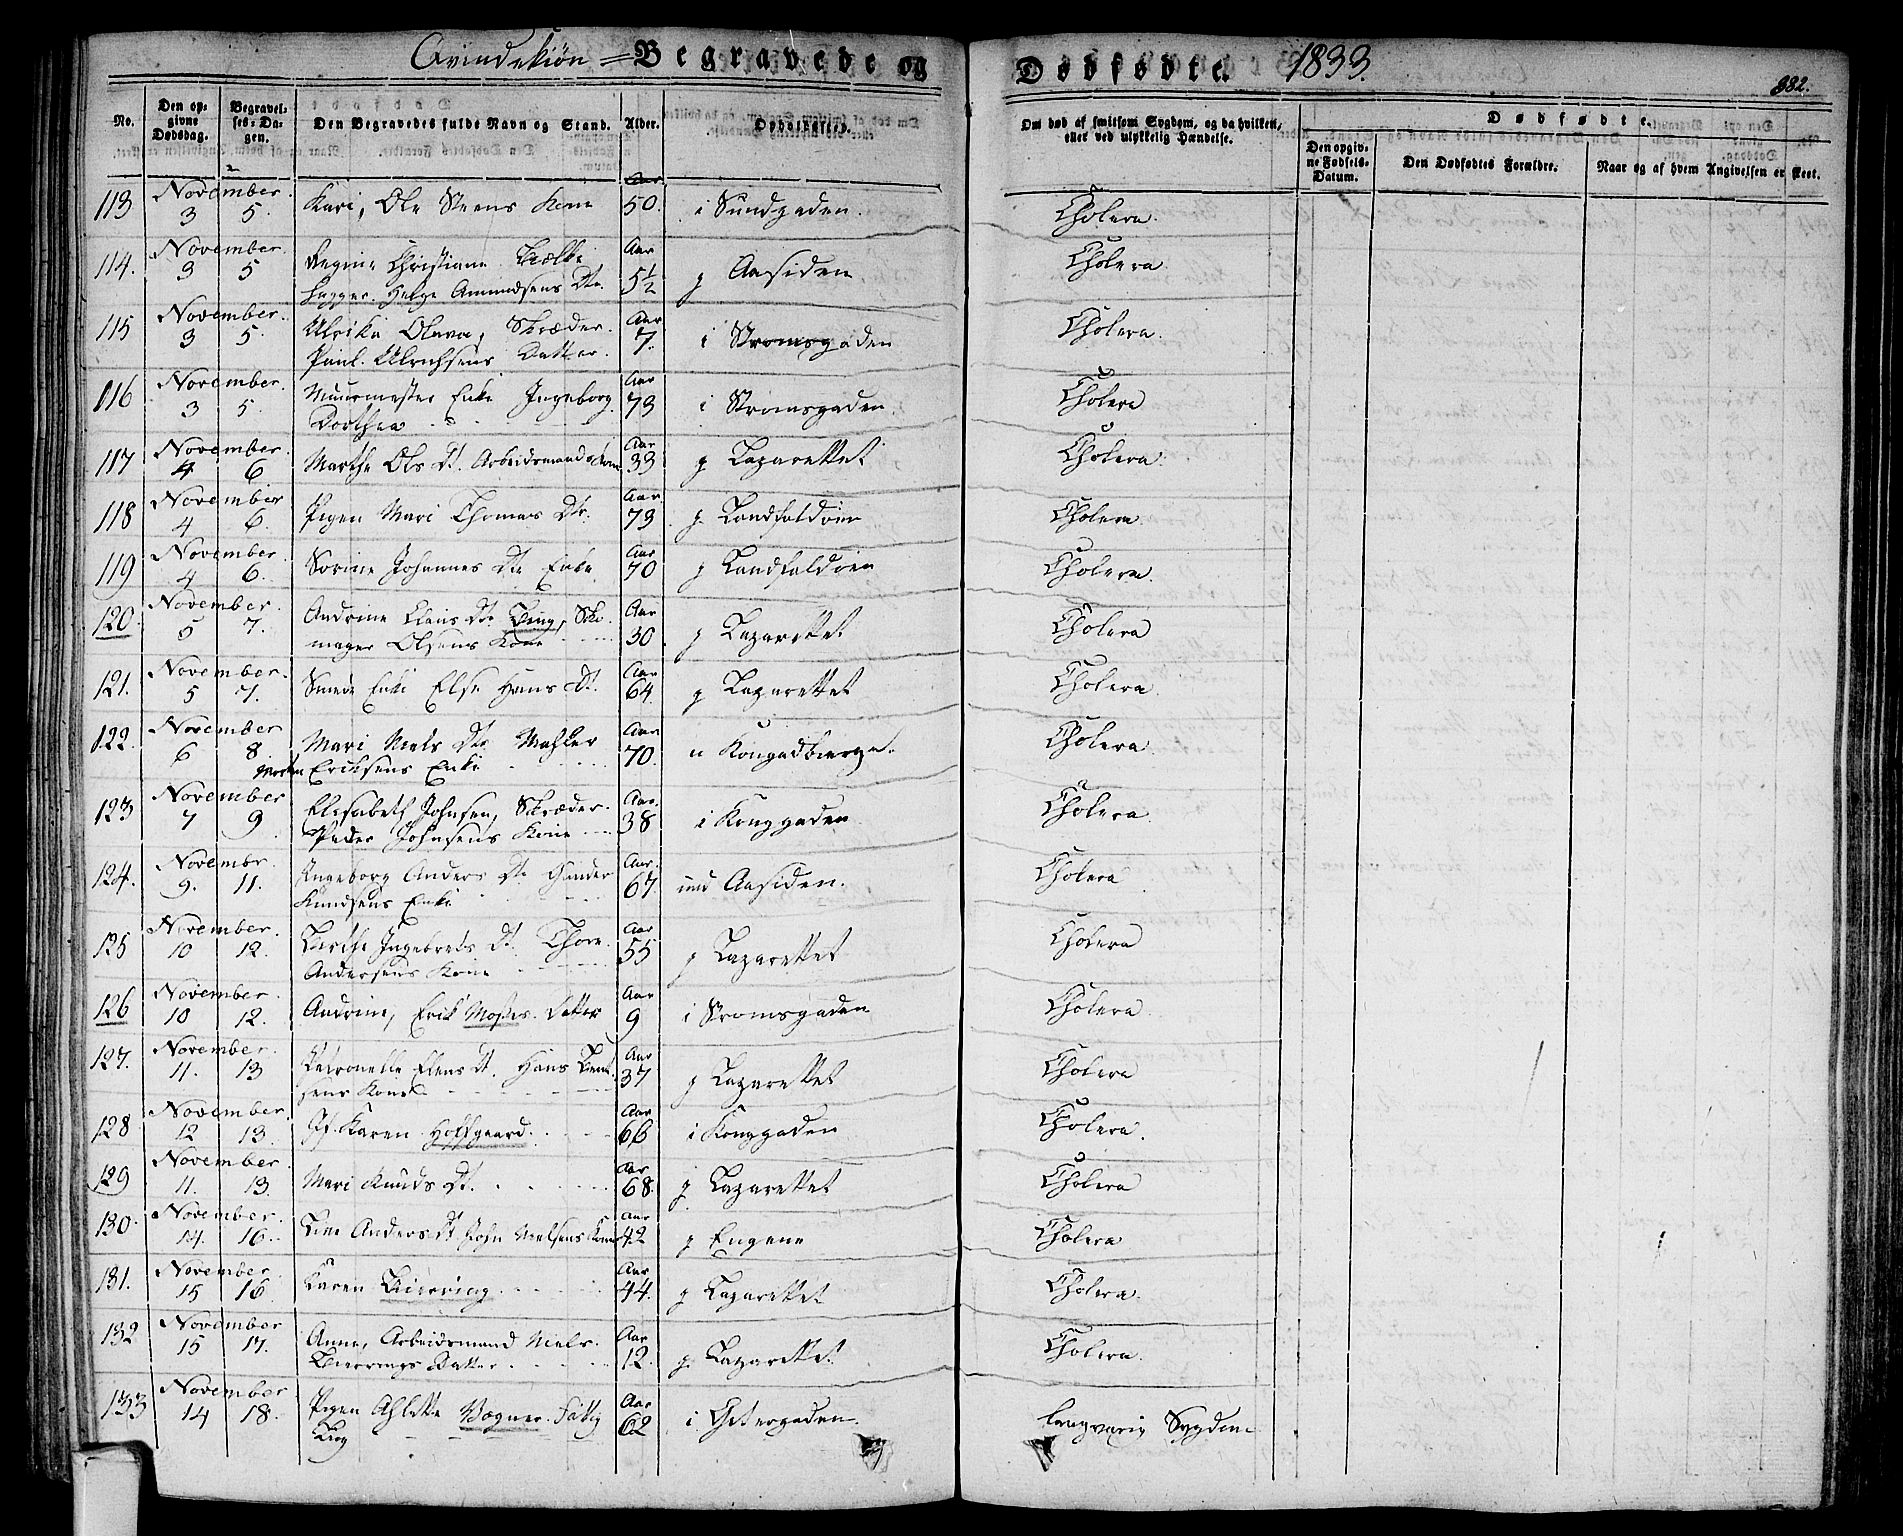 Qvindekiøn = Begravede og Dødfødte. 1833.
382.
No.
Den opgivne Dødsdag.
Begravelses-Dagen.
Den Begravedes fulde Navn og Stand.
Alder.
Dødssstedet.
Om død af smitsom Sygdom, og da hvilken, eller ved ulykkelig Hændelse.
Dødfødte.
Den opgivne Fødsels-Datum.
Den Dødfødtes Forældre.
Naar og af hvem Angivelsen er skeet.
113 November. 3 5. Kari, Ole Steens Kone Aar 50. i Sundgaden. Cholera.
114. November 3 5 Regine Christiane
Helge Amundsens Dtr. Aar 5½ p Aasiden Cholera
115 November. 3 5. Ulrika Olava, Skræder
Paul Ulrichsens Datter. Aar 7. i Stromsgaden Cholera.
116 November. 3 5. Muurmester Enke Ingeborg
Dorthea Aar 73 i Stromsgaden Cholera
117 November. 4 6 Marthe Ols Dt. Arbeidsmands Kone Aar 33 p Lazarettet Cholera
118 November 4 6. Pigen Mari Thomas Dtr. Aar. 73 p Landfaldøen Cholera
119 November. 4 6. Sorine Johannes Dtr Enke Aar 70 p Landfaldøen Cholera.
120 November. 5 7. Andrine Claus Dtr Sko-
mager Olsens Kone Aar 30. p Lazarettet Cholera
121. November. 5 7. Smede Enke Else Hans Dt. Aar 64. p Lazarettet Cholera.
122. November 6 8 Mari Niels Dtr Mahler
Morten Eriksens Enke Aar 70. Cholera.
123 November 7 9 Elisabeth Johnsen, Skræder
Peder Johnsens Kone Aar. 38 i Konggaden Cholera.
124. Novembr. 9. 11. Ingeborg Anders Dtr Gunder
Knudsens Enke Aar. 67. ved Aasiden. Cholera
125 November. 10 12. Berthe Ingebrets Dt. Thore
Andersens Kone Aar 55 p Lazarettet Cholera
126 November. 10 12. Andrine, Erik Moses Datter Aar 9 i Stromsgaden Cholera.
127. November. 11. 13 Petronelle Elens Dt. Hans
sens Kone Aar 37 p Lazarettet Cholera
128 November. 12 13. Jf. Karen Hoffgaard. Aar 66 i Konggaden Cholera.
129 November. 11. 13. Mari Knuds Dt. Aar 68. p Lazarettet Cholera
130. November. 14. 16. Anders Dt John Nielsens Kone Aar 42 p Engene Cholera
131. November. 15 16. Karen Bierring Aar 44. p Lazarettet Cholera.
132 November 15 17. Anne, Arbeidsmand Niels
Bierrings Datter Aar 12. p Lazarettet Cholera.
133 November 14 18. Pigen Ahlette Wegner Fattig Aar 62 i Gitergaden Langvarig Sygdom